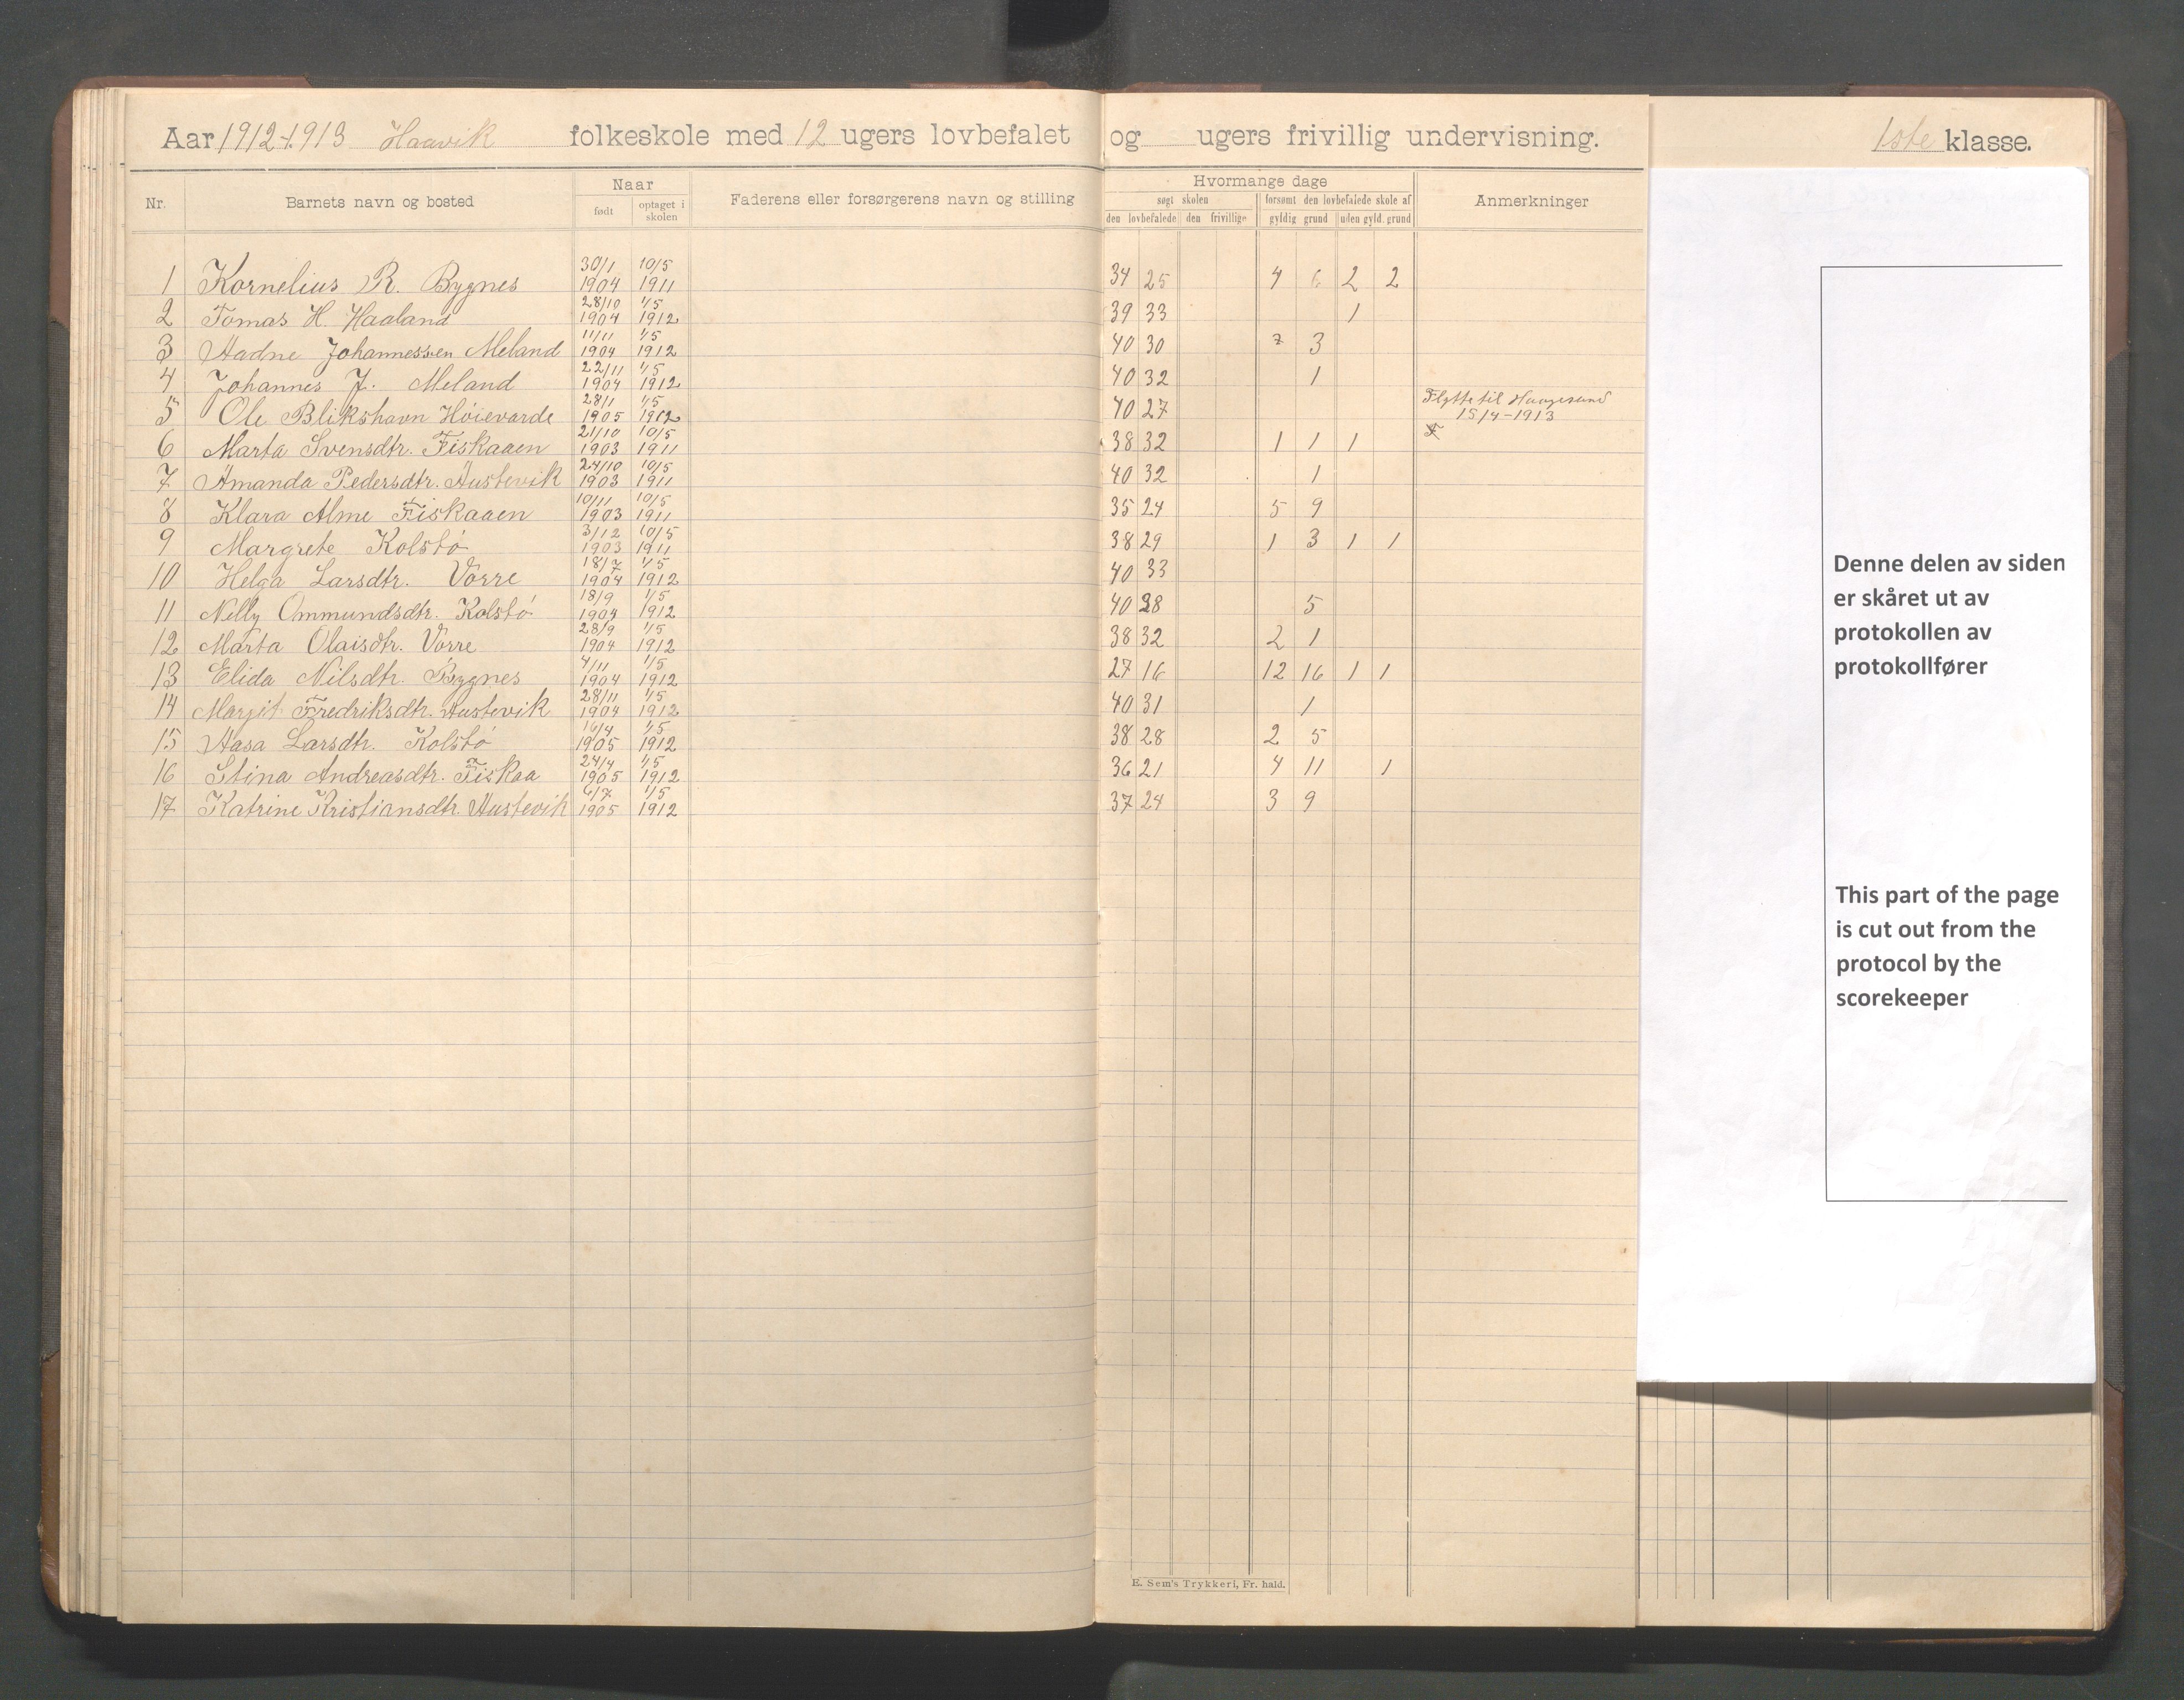 Aar 1912-1913 Haavik folkeskole med 12 ugers lovbefalet og ugers frivillig undervisning. 1ste klasse.
Nr. Barnets navn og bosted Naar født optaget i skolen Faderens eller forsørgerens navn og stilling Hvormange dage søgt skolen den lovbefalede den frivillige forsømt den lovbefalede skole af gyldig grund uden gyld. grund Anmerkninger
1 Kornelius R. Bygnes 30/1 1904 10/5 1911 34 25 4 6 2 2
2 Tomas H. Haaland 28/10 1904 1/5 1912 39 33 1
3 Aadne Johannessen Meland 11/11 1904 1/5 1912 40 30 3
4 Johannes J. Meland 22/11 1904 1/5 1912 40 32 1
5 Ole Blikshavn Høievarde 28/1 1905 1/5 1912 40 27 Flytte til Haugesund 15/4-1913
6 Marta Svensdtr. Fiskaaen 21/10 1903 10/5 1911 38 32 1 1 1
7 Amanda Pedersdtr. Austevik 24/10 1903 10/5 1911 40 32 1
8 Klara Alme Fiskaaen 10/11 1903 10/5 1911 35 24 5 9
9 Margrete Kolstø 3/12 1903 10/5 1911 38 29 1 3 1 1
10 Helga Larsdtr. Vorre 18/7 1904 1/5 1912 40 33
11 Nelly Ommundsdtr. Kolstø 18/9 1904 1/5 1912 40 28 5
12 Marta Olaisdtr. Vorre 28/9 1904 1/5 1912 38 32 2 1
13 Elida Nilsdtr. Bygnes 4/11 1904 1/5 1912 27 16 12 16 1 1
14 Margit Fredriksdtr. Austevik 28/11 1904 1/5 1912 40 31 1
15 Aasa Larsdtr. Kolstø 16/4 1905 1/5 1912 38 28 2 5
16 Stina Andreasdtr. Fiskaa 24/4 1905 1/5 1912 36 21 4 11 1
17 Katrine Kristiansdtr. Austevik 6/7 1905 1/5 1912 37 24 3 9
E. Sem's Trykkeri, Fr. hald.
Denne delen av siden
er skåret ut av
protokollen av
protokollfører
This part of the page
is cut out from the
protocol by the
scorekeeper